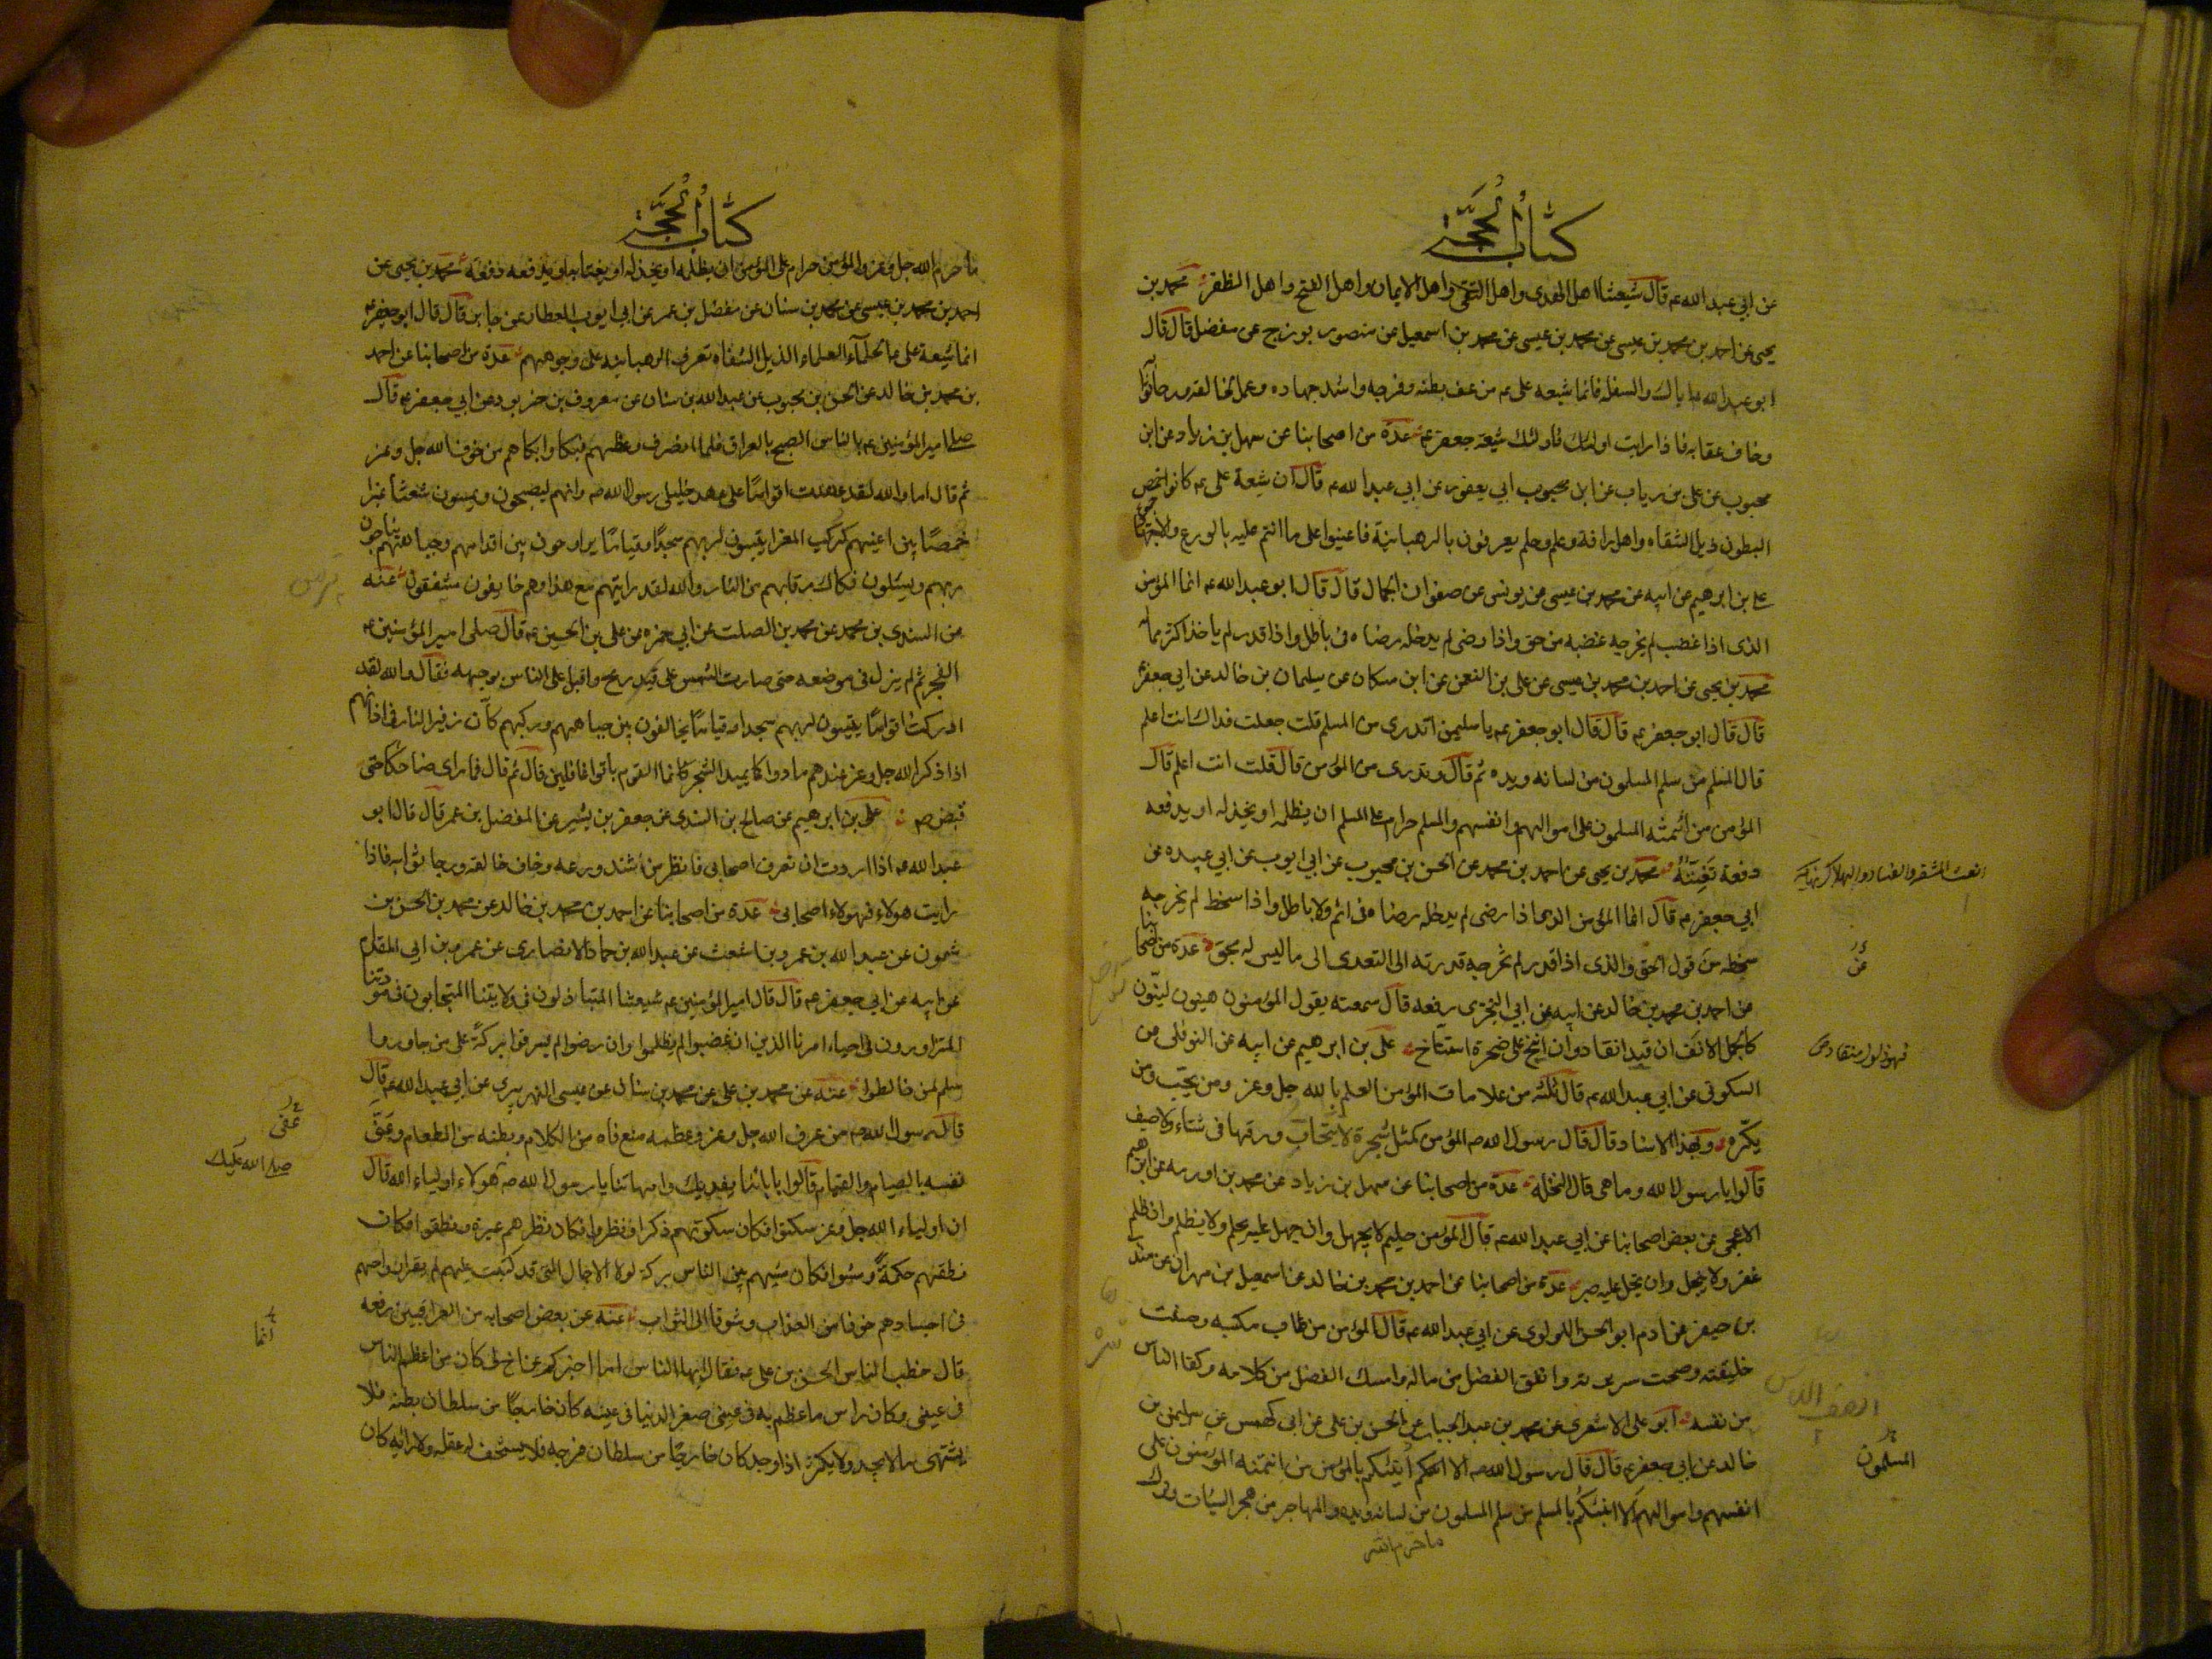 كتاب الحجة
عن ابي عبد الله عم قال شيعتنا اهل الهدى واهل التقى واهل الايمان واهل الفتح واهل الظفر محمد بن
يحيى عن احمد بن محمد بن عيسى عن محمد بن عيسى عن محمد بن اسمعيل عن منصور بوزرج عن مفضل قال قال
ابو عبد الله عم اياك والسفلة فانما شيعة على عم من عف بطنه وفرجه واشتد جهاده وعمل لخالقه ورجا ثوابه
وخاف عقابه فاذا رايت اولئك فاولئك شيعة جعفر عم عدة من اصحابنا عن سهل بن زياد عن ابن
محبوب عن على بن رياب عن ابن محبوب ابي يعفور عن ابي عبد الله عم قال ان شيعة على عم كانوا خمص
البطون ذبل الشفاه واهل رافة وعلم وحلم يعرفون بالرهبانية فاعينوا على ما انتم عليه بالورع والاجتهاد
على بن ابرهيم عن ابيه عن محمد بن عيسى عن يونس عن صفوان الجمال قال قال ابو عبد الله عم انما المؤمن
الذى اذا غضب لم يخرجه غضبه من حق واذا رضى لم يدخله رضاه فى باطل واذا قدر لم ياخذ اكثر مماله
محمد بن يحيى عن احمد بن محمد بن عيسى عن على بن النعمن عن ابن مسكان عن سليمان بن خالد عن ابي جعفر عم
قال قال ابو جعفر عم قال قال ابو جعفر عم يا سليمن اتدرى من المسلم قلت جعلت فداك انت اعلم
قال المسلم من سلم المسلمون من لسانه ويده ثم قال وتدرى من المؤمن قال قلت انت اعلم قال
المؤمن من ائتمنه المسلمون على اموالهم وانفسهم والمسلم حرام على المسلم ان يظلمه او يخذله او يدفعه
دفعة تعنته محمد بن يحيى عن احمد بن محمد عن الحسن بن محبوب عن ابي ايوب عن ابي عبيده عن
ابي جعفر عم قال انما المؤمن الذى اذا رضى لم يدخله رضاه فى اثم ولا باطل واذا سخط لم يخرجه
سخطه من قول الحق والذى اذا قدر لم تخرجه قدرته الى التعدى الى ما ليس له بحق عدة من اصحابنا
عن احمد بن محمد بن خالد عن ابيه عن ابي البخترى رفعه قال سمعته يقول المؤمنون هينون لينون
كالجمل الانف ان قيد انقاد وان انيخ على صخرة استناخ على بن ابرهيم عن ابيه عن النوفلى عن
السكونى عن ابي عبد الله عم قال ثلثة من علامات المؤمن العلم بالله جل وعز ومن يحب ومن
يكره وبهذا الاسناد قال قال رسول الله صم المؤمن كمثل شجرة لا يتحات ورقها فى شتاء ولا صيف
قالوا يا رسول الله وما هى قال النخلة عدة من اصحابنا عن سهل بن زياد عن محمد بن اورمه عن ابرهيم
الاعجمى عن بعض اصحابنا عن ابي عبد الله عم قال المؤمن حليم لا يجهل وان جهل عليه يحلم ولا يظلم وان ظلم
غفر ولا يبخل وان بخل عليه صبر عدة من اصحابنا عن احمد بن محمد بن خالد عن اسمعيل بن مهران عن منذر
بن جيفر عن ادم ابو الحسن اللولوى عن ابي عبد الله عم قال المؤمن من طاب مكسبه وحسنت
خليقته وصحت سريرته وانفق الفضل من ماله وامسك الفضل من كلامه وكفا الناس
من نفسه ابو على الاشعرى عن محمد بن عبد الجبار عن الحسن بن على عن ابي كهمس عن سليمن بن
خالد عن ابي جعفر عم قال قال رسول الله صم الا انبئكم بالمؤمن من ائتمنه المؤمنون على
انفسهم واموالهم الا انبئكم بالمسلم من سلم المسلمون من لسانه ويده والمهاجر من هجر السيئات وترك
ما حرم الله
عن
المسلمون
كتاب الحجة
ما حرم الله جل وعز والمؤمن حرام على المؤمن ان يظلمه او يخذله او يغتابه او يدفعه دفعة محمد بن يحيى عن
احمد بن محمد بن عيسى عن محمد بن سنان عن مفضل بن عمر عن ابي ايوب العطار عن جابر قال قال ابو جعفر عم
انما شيعة على عم الحلماء العلماء الذبل الشفاه تعرف الرهبانية على وجوههم عدة من اصحابنا عن احمد
بن محمد بن خالد عن الحسن بن محبوب عن عبد الله بن سنان عن معروف بن خربوذ عن ابي جعفر عم قال
صلى امير المؤمنين عم بالناس الصبح بالعراق فلما انصرف وعظهم فبكا وابكاهم من خوف الله جل وعز
ثم قال اما والله لقد عهدت اقواما على عهد خليلى رسول الله صم وانهم ليصبحون ويمسون شعثا غبرا
خمصا بين اعينهم كركب المعزا يبيتون لربهم سجدا وقياما يراوحون بين اقدامهم وجباههم يناجون
ربهم ويسئلون فكاك رقابهم من النار والله لقد رايتهم مع هذا وهم خايفون مشفقون عنه
عن السندى بن محمد عن محمد بن الصلت عن ابي حمزه عن على بن الحسين عم قال صلى امير المؤمنين عم
الفجر ثم لم يزل فى موضعه حتى صارت الشمس على قيد رمح واقبل على الناس بوجهه فقال والله لقد
ادركت اقواما يبيتون لربهم سجدا وقياما يخالفون بين جباههم وركبهم كأن زفير النار فى اذانهم
اذا ذكر الله جل وعز عندهم مادوا كما يميد الشجر كانما القوم باتوا غافلين قال ثم قال فما راى ضاحكا حتى
قبض صم على بن ابرهيم عن صالح بن السندى عن جعفر بن بشير عن المفضل بن عمر قال قال ابو
عبد الله عم اذا اردت ان تعرف اصحابى فانظر من اشتد ورعه وخاف خالقه ورجا ثوابه فاذا
رايت هولاء فهولاء اصحابى عدة من اصحابنا عن احمد بن محمد بن خالد عن محمد بن الحسن بن
شمون عن عبد الله بن عمرو بن اشعث عن عبد الله بن حماد الانصارى عن عمرو بن ابي المقدام
عن ابيه عن ابي جعفر عم قال قال امير المؤمنين عم شيعتنا المتباذلون فى ولايتنا المتحابون فى مودتنا
المتزاورون فى احياء امرنا الذين ان غضبوا لم يظلموا وان رضوا لم يسرفوا بركة على من جاوروا
سلم لمن خالطوا عنه عن محمد بن على عن محمد بن سنان عن عيسى النهربيرى عن ابي عبد الله عم قال
قال رسول الله صم من عرف الله جل وعز وعظمه منع فاه من الكلام وبطنه من الطعام وعفى
نفسه بالصيام والقيام قالوا بابائنا وامهاتنا يا رسول الله صم هولاء اولياء الله قال
ان اولياء الله جل وعز سكتوا فكان سكوتهم ذكرا ونظروا فكان نظرهم عبرة ونطقوا فكان
نطقهم حكمة ومشوا فكان مشيهم بين الناس بركة لولا الاجال التى قد كتبت عليهم لم تقر ارواحهم
فى اجسادهم خوفا من العذاب وشوقا الى الثواب عنه عن بعض اصحابه من العراقيين رفعه
قال خطب الناس الحسن بن على عم فقال ايها الناس انما اخبركم عن اخ لى كان من اعظم الناس
فى عينى وكان راس ما عظم به فى عينى صغر الدنيا فى عينه كان خارجا من سلطان بطنه فلا
يشتهى ما لا يجد ولا يكثر اذا وجد كان خارجا من سلطان فرجه فلا يستخف له عقله ولا رائه كان
عفى
صلى الله عليك
انما